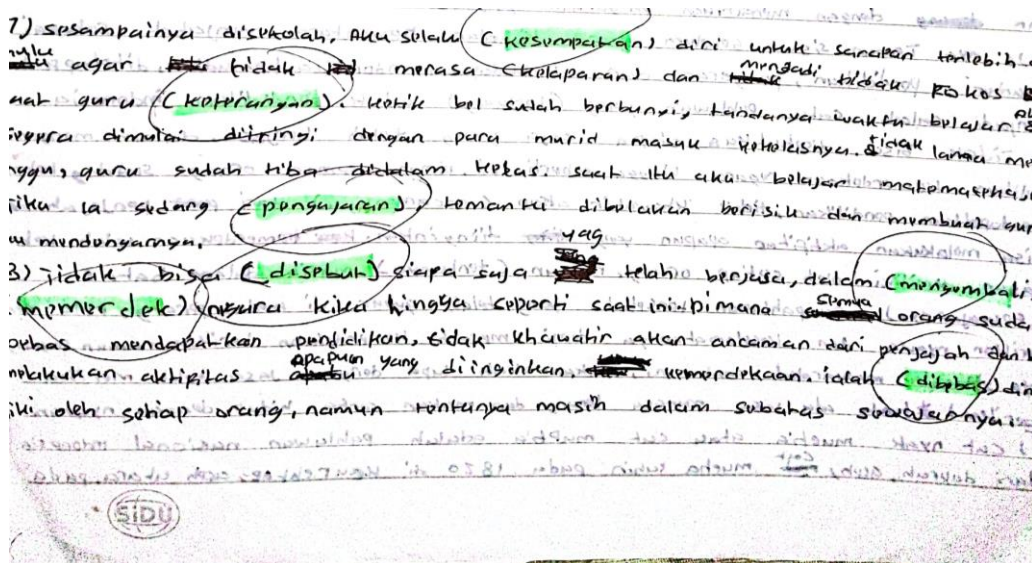 7) sesampainya disekolah, Aku selalu (kesempatan) diri untuk sarapan terlebih
agar tidak merasa (kelaparan) dan mengadi tidak fokos
guru (keterangan). ketik bel sudah berbunyi, tandanya waktu belajar
segera dimulai diiringi dengan para murid masuk kekelasnya. tidak lama
nggu, guru sudah tiba didalam kekas. saat itu aku belajar matematika,
tiku ia sedang (pengajaran), temanku dibelakan berisik dan membuat
mendengarnya,
8) Tidak bisa (disebut) siapa saja yag telah berjasa, dalam (mengembali
(memerdek) negara kika hingga seperti saat ini. Dimana semua orang suda
bebas mendapatkan pendidikan, tidak khawatir akan ancaman dari penjajah dan
melakukan aktipitas apapun yang diinginkan. kemerdekaan. ialah (dibebas)
iki oleh setiap orang, namun tentunya masih dalam subatas sewajarnya.
SIDU